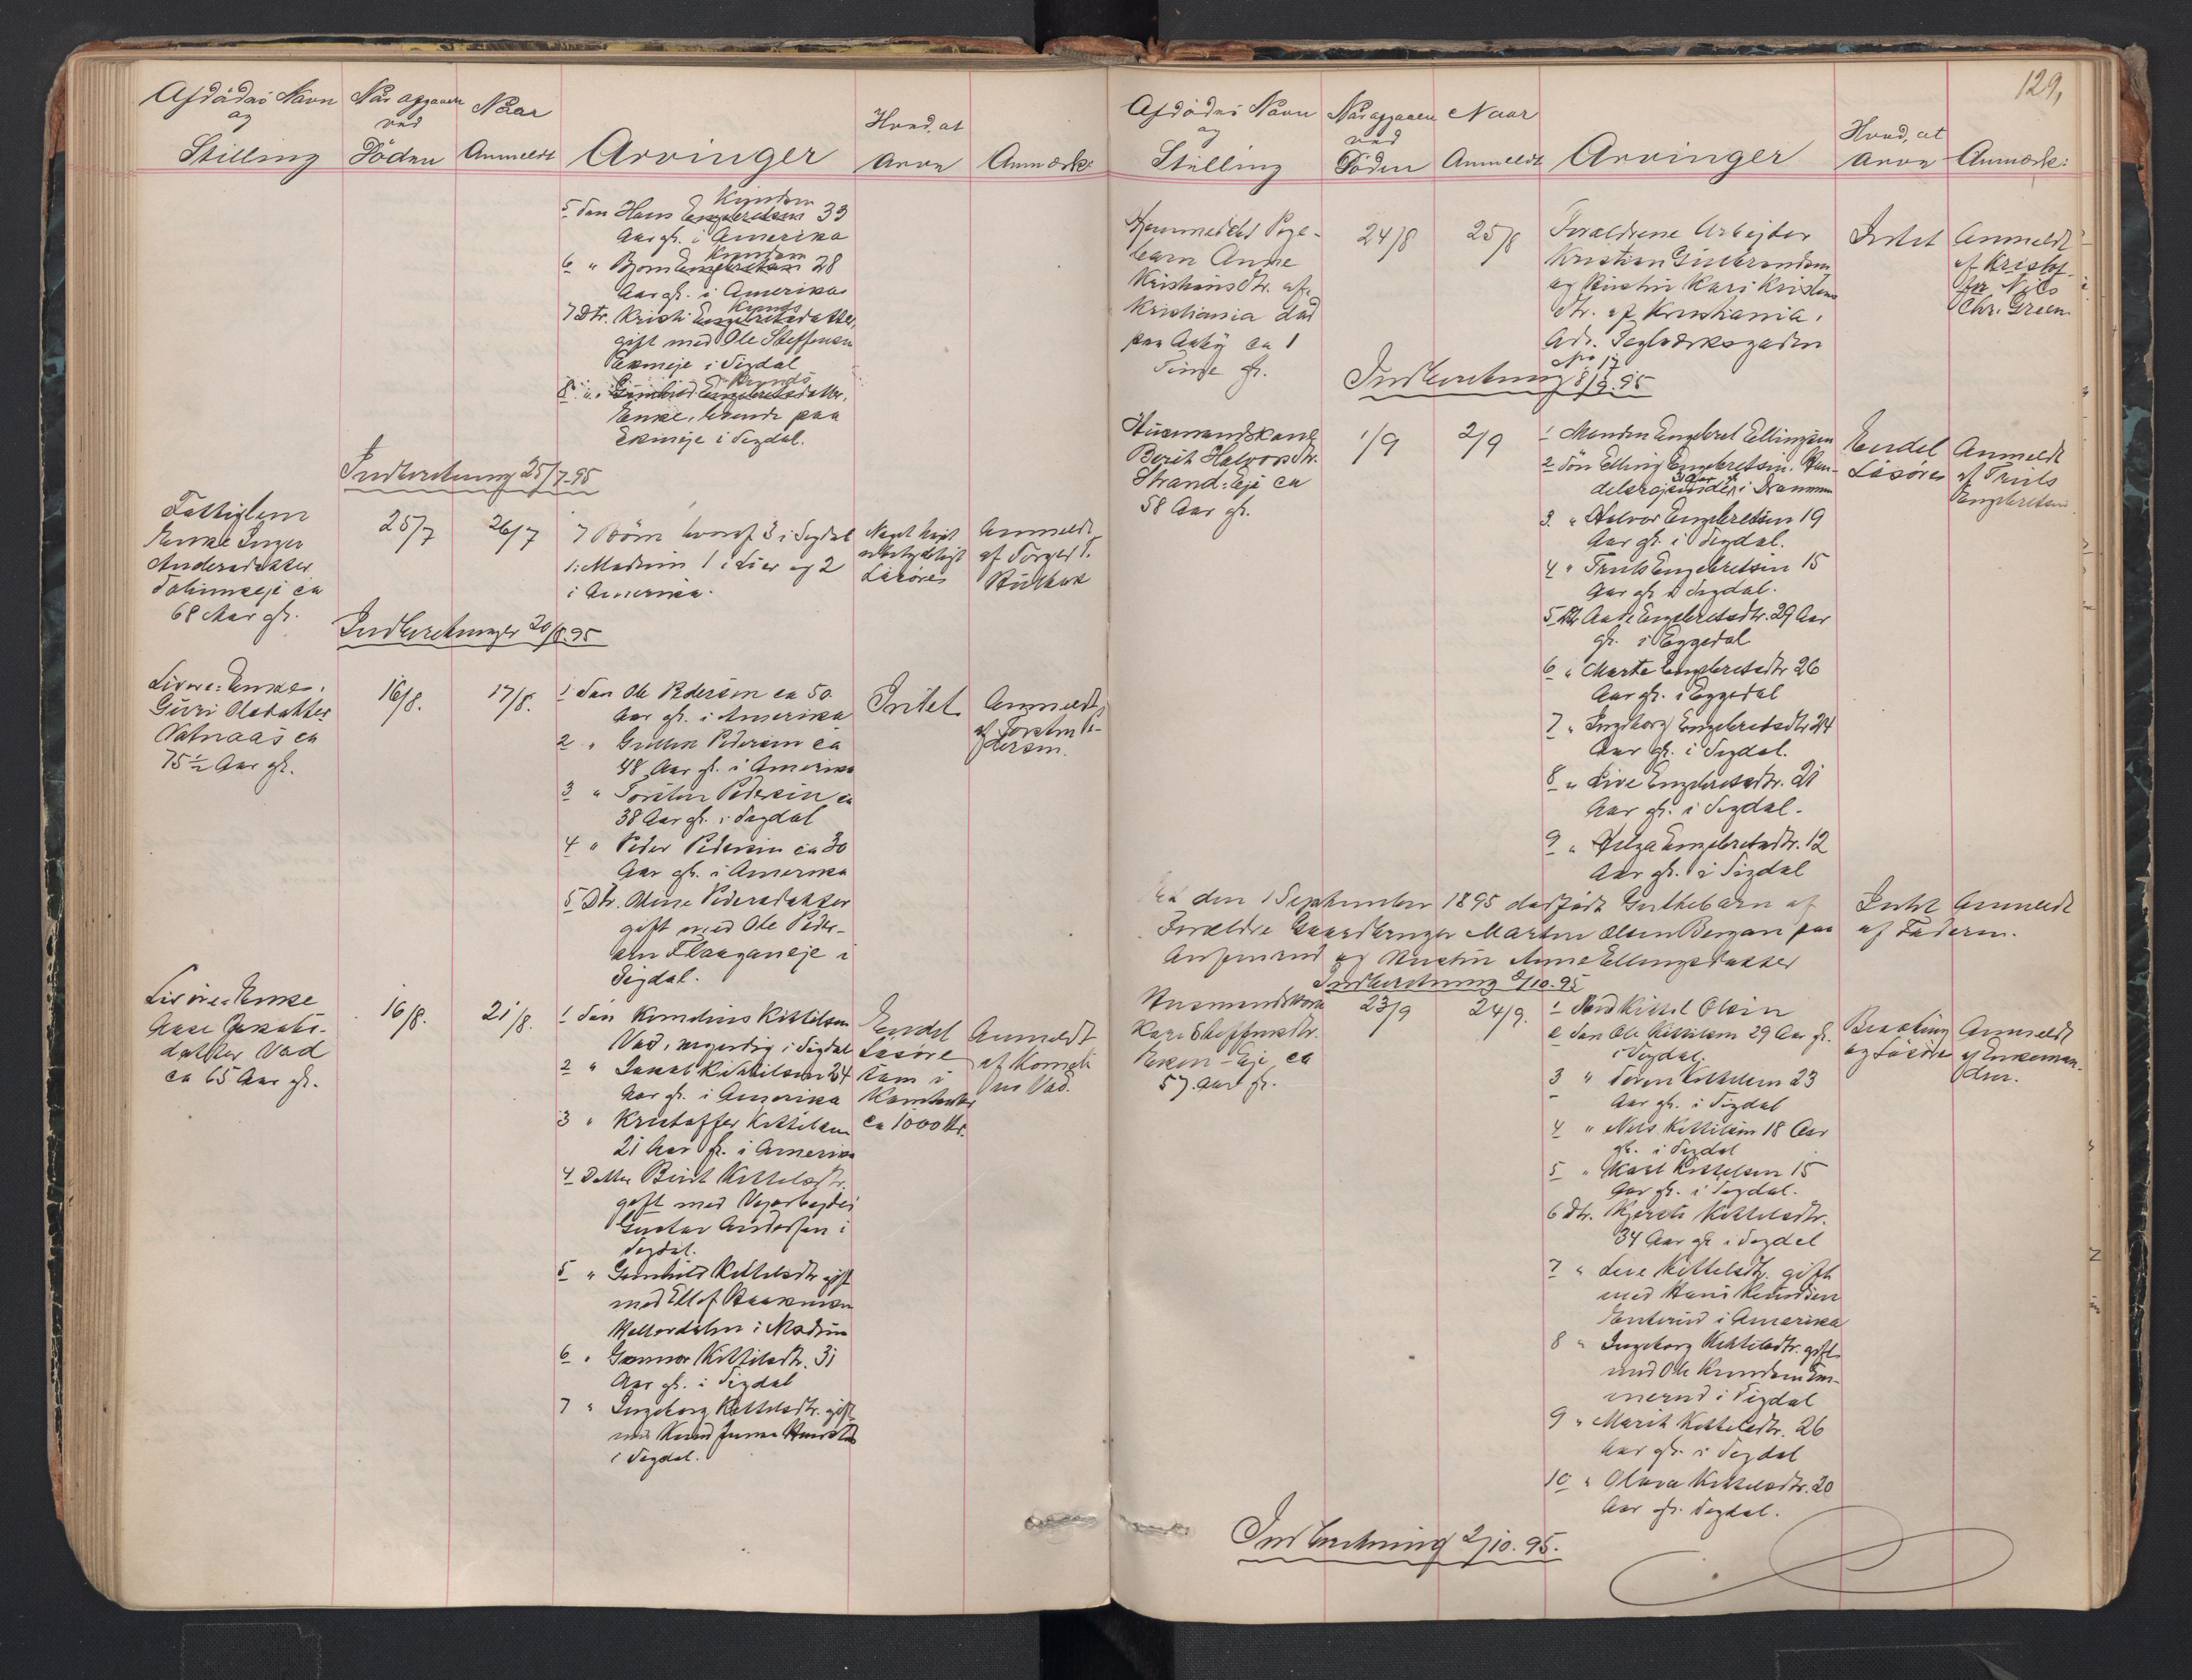 Afdødes Navn
og
Stilling
Når afgaaen
ved
Döden
Naar
Anmeldt
Arvinger
Hvad, at
arve
Anmærk:
5 Søn Hans Engebretsen Knudsen 33
Aar gl. i Amerika
6 " Bjørn Engebretsen Knudsen 28
Aar gl. i Amerika
7 Dtr. Kristi Engebretsdatter Knuds
gift med Ole Steffensen
Ekeneje i Sigdal
8 " Gunhild Engebretsdatter, Knuds
Enke, boende paa
Ekeneje i Sigdal.
Indberetning 25/7-95
Fattiglem
Enke Inger
Andersdatter
ca
68 Aar gl.
25/7
26/7
7 Börn hvoraf 3 i Sigdal
1 i Modum 1 i Lier og 2
i Amerika.
Noget höist
ubetydeligt
Lösöre
Anmeldt
af Törger T.
Indberetninger 20/8.95
Enke
Guri Olsdatter
Vatnaas ca
75½ Aar gl.
16/8.
17/8.
1 Søn Ole Pedersen ca 50
Aar gl. i Amerika
2 " Gullik Pedersen ca
48 Aar gl. i Amerika
3 " Torsten Pedersen ca
38 Aar gl. i Sigdal
4 " Peder Pedersen ca 30
Aar gl. i Amerika
5 Dtr. Oline Pedersdatter
gift med Ole Peder-
sen Flaaganeje i
Sigdal.
Intet
Anmeldt
af Torsten Pe-
dersen.
Enke
Aase Jakobs-
datter Vad
ca 65 Aar gl.
16/8.
21/8.
1 Søn Kornelius Kittilsen
Vad, myndig i Sigdal
2 " Jakob Kittilsen 24
Aar gl. i Amerika
3 " Kristoffer Kittilsen
21 Aar gl. i Amerika
4 Datter Berit Kittelsdtr.
gift med Vejarbejder
Gustav Andersen i
Sigdal.
5 " Gunhild Kittelsdtr. gift
med Ellef Haakensen
i Modum
6 " Gunnor Kittilsdtr. 31
Aar gl. i Sigdal
7 " Ingeborg Kittelsdtr. gift
med Knud
i Sigdal.
Endel
Lösöre
sam i
Kontanter
ca 1000 Kr.
Anmeldt
af Korneli-
us Vad.
129,
Afdödes Navn
og
Stilling
Når afgaaen
ved
Döden
Naar
Anmeldt
Arvinger
Hvad, at
arve
Anmærk:
Hjemmedöbt Pige-
barn Anne
Kristiansdtr. af
Kristiania död
paa Aaby ca 1
Time gl.
24/8
25/8
Forældrene Arbejder
Kristian Gulbrandsen
og Hustru Kari Kristens
dtr. af Kristiania.
Adr. Teglværksgaden
No 17
Intet
Anmeldt
af Kristof-
fer Nils
Chr. Green
Indberetning 8/9.95
Husmandskone
Berit Halvorsdtr.
Strand-Eje ca
58 Aar gl.
1/9
2/9
1 Manden Engebret Ellingsen
2 Søn Elling Engebretsen. Han-
delsrejsende i Drammen 31 Aar gl.
3 " Halvor Engebretsen 19
Aar gl. i Sigdal.
4 " Truls Engebretsen 15
Aar gl. i Sigdal.
5 Dtr. Aase Engebretsdtr. 29 Aar
gl. i Eggedal
6 " Marte Engebretsdtr 26
Aar gl. i Eggedal
7 " Ingeborg Engebretsdtr 24
Aar gl. i Sigdal.
8 " Live Engebretsdtr. 21
Aar gl. i Sigdal.
9 " Helga Engebretsdtr. 12
Aar gl. i Sigdal
Endel
Lösöre
Anmeldt
af Truls
Engebretsen.
Et den 1 September 1895 dødfødt Guttebarn af
Forældre Gaardbruger Martin Olsen Bergan paa
og Hustru Anne Ellingsdatter
Intet
Anmeldt
af Faderen.
Indberetning 2/10.95
Husmandskone
Kari Steffensdtr.
Eken-Eje ca
57 Aar gl.
23/9
24/9.
1 Mand Kittil Olsen
2 Søn Ole Kittilsen 29 Aar gl.
i Sigdal.
3 " Søren Kittilsen 23
Aar gl. i Sigdal
4 " Nils Kittilsen 18 Aar
gl. i Sigdal
5 " Karl Kittelsen 15
Aar gl. i Sigdal.
6 Dtr. Kjersti Kittelsdtr.
34 Aar gl. i Sigdal
7 " Live Kittelsdtr. gift
med Hans Knudsen
i Amerika
8 " Ingeborg Kittelsdtr. gift
med Ole Knudsen
i Sigdal
9 " Marit Kittelsdtr. 26
Aar gl. i Sigdal
10 " Olava Kittelsdtr. 20
Aar gl. Sigdal.
Besætning
og Lösöre
Anmeldt
af Enkeman-
den.
Indberetning 2/10.95.